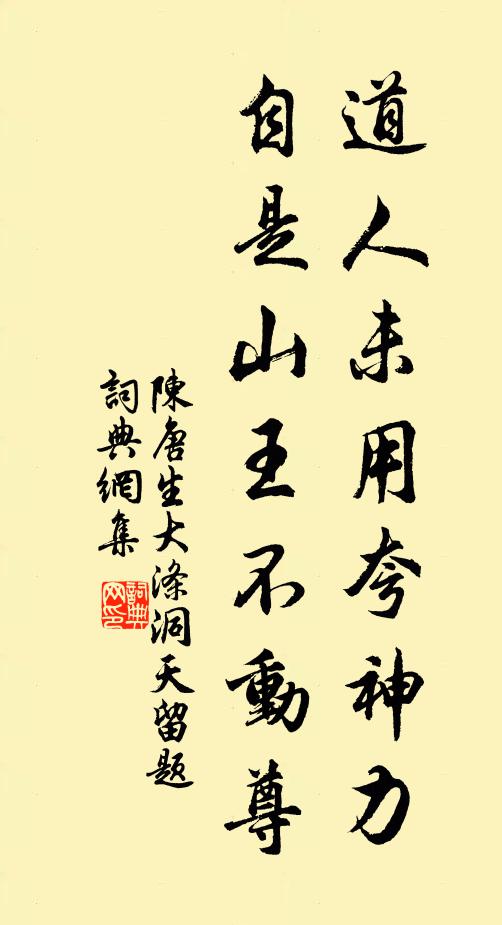 道人未用夸神力
自是山王不動尊
陳唐生大滌洞天留题
詞典網集
詞典网印